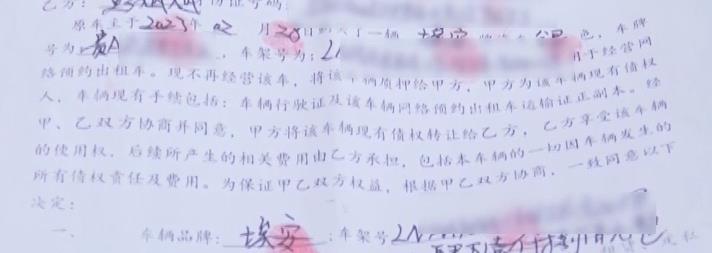 乙方:
原车主于2023年02月28日 一辆 埃安 色,车牌
号为:贵A ,车架号为:L 用于经营网
络预约出租车。现不再经营该车,将该车辆质押给甲方,甲方为该车辆现有债权
人,车辆现有手续包括:车辆行驶证及该车辆网络预约出租车运输证正副本。经
甲、乙双方协商并同意,甲方将该车辆现有债权转让给乙方,乙方享受该车辆
的使用权,后续所产生的相关费用由乙方承担,包括本车辆的一切因车辆发生的
所有债权责任及费用。为保证甲乙双方权益,根据甲乙双方协商,一致同意以下
决定:
一、 车辆品牌:埃安;车架号L